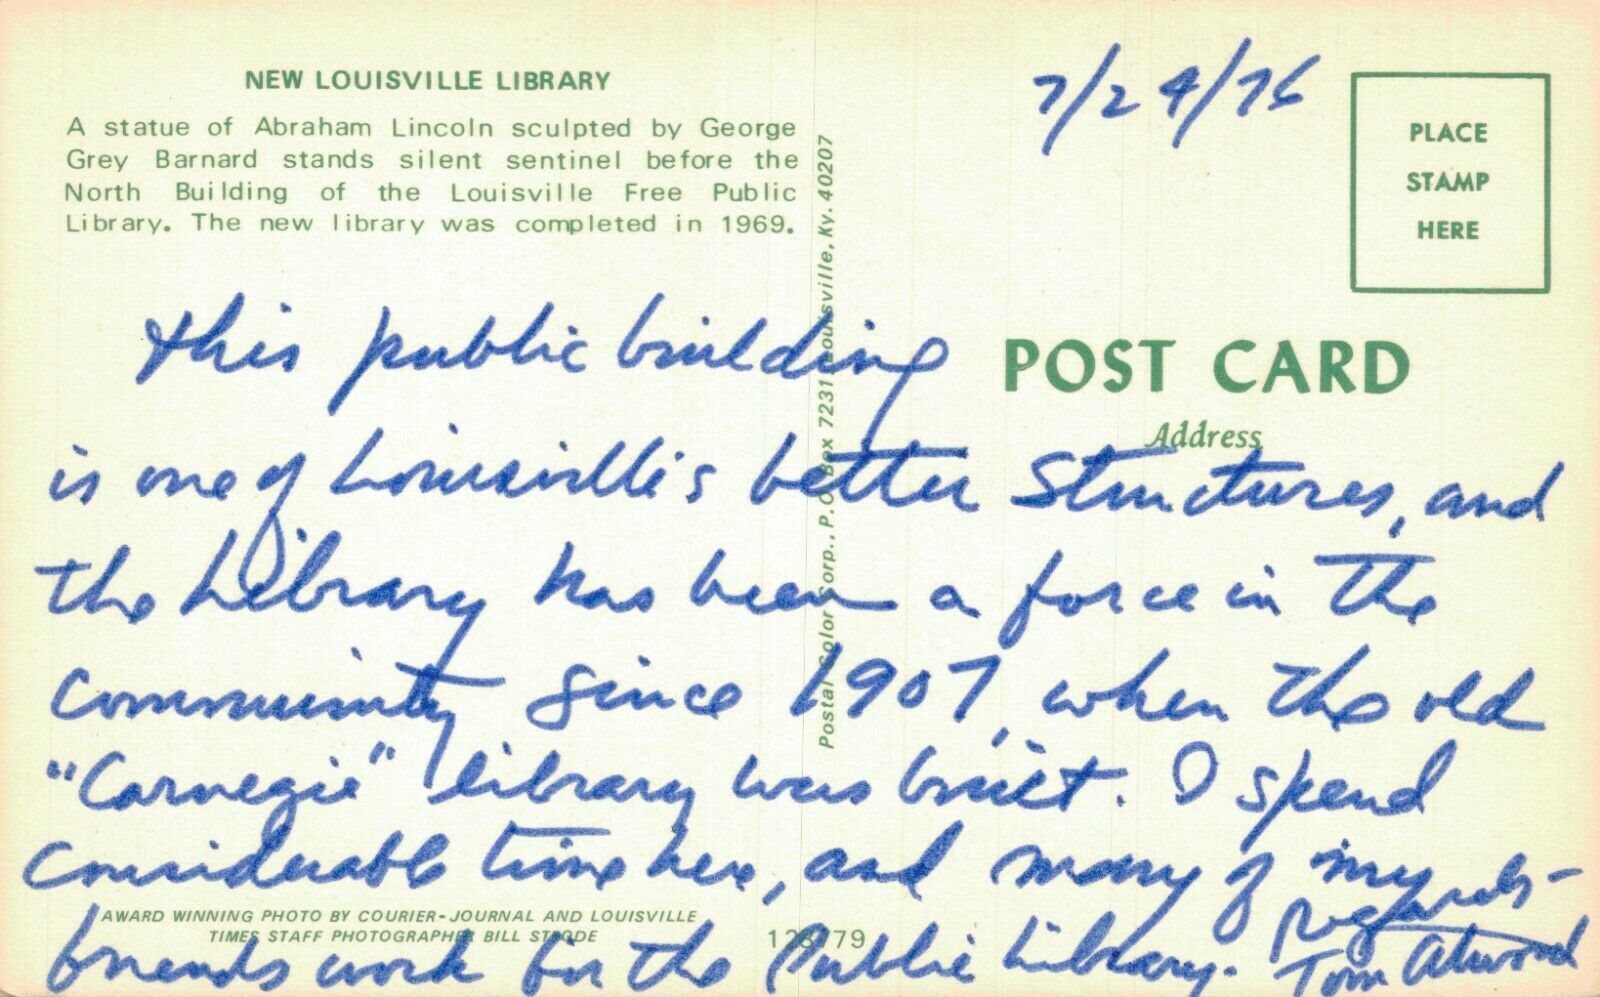 NEW LOUISVILLE LIBRARY
A statue of Abraham Lincoln sculpted by George
Grey Barnard stands silent sentinel before the
North Building of the Louisville Free Public
Library. The new library was completed in 1969.
7/24/76
PLACE
STAMP
HERE
POST CARD
Address
Postal Color Corp., P.O. Box 7231 Louisville, Ky. 40207
this public building
is one of Louisville's better structures, and
the Library has been a force in the
community since 1907, when the old
"Carnegie" library was built. I spend
considerable time here, and many of my
friends work for the Public Library.
regards-
Tom Atwood
AWARD WINNING PHOTO BY COURIER-JOURNAL AND LOUISVILLE
TIMES STAFF PHOTOGRAPHER BILL STRODE